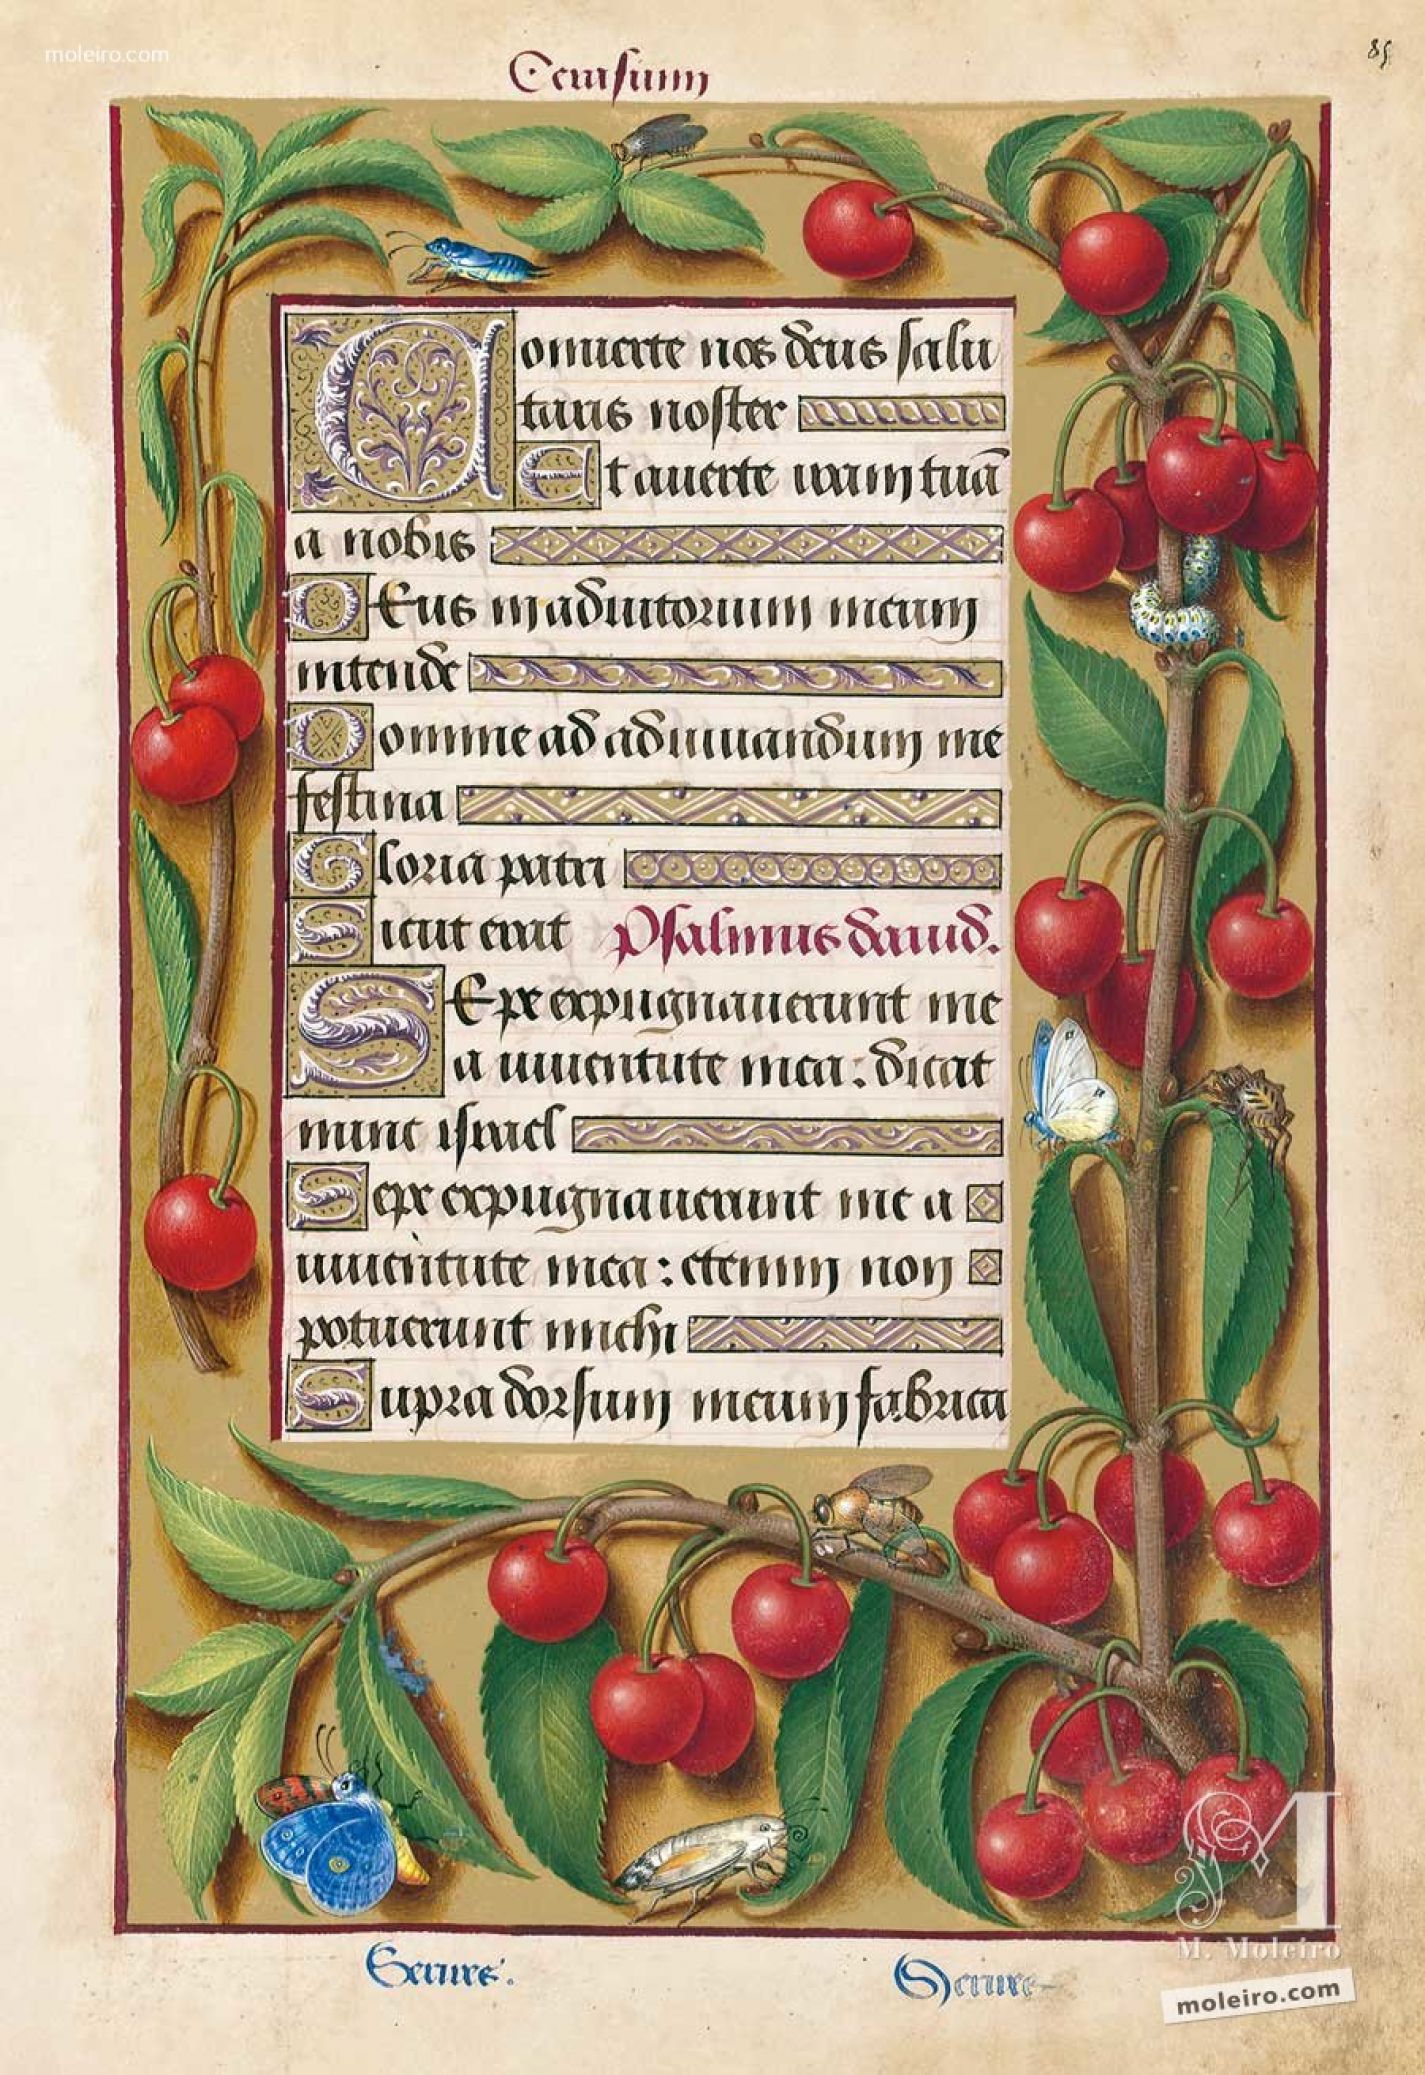 moleiro.com
85
Cerasum
Conuerte nos deus salu
taris noster
Et auerte iram tuã
a nobis
DEus in adiutorium meum
intende
Domine ad adiuuandum me
festina
Gloria patri
Sicut erat Psalmus dauid.
SEpe expugnauerunt me
a iuuentute mea: dicat
nunc israel
Sepe expugnauerunt me a
iuuentute mea: etenim non
potuerunt michi
Supra dorsum meum fabrica
Serises. Serise
M. Moleiro
moleiro.com